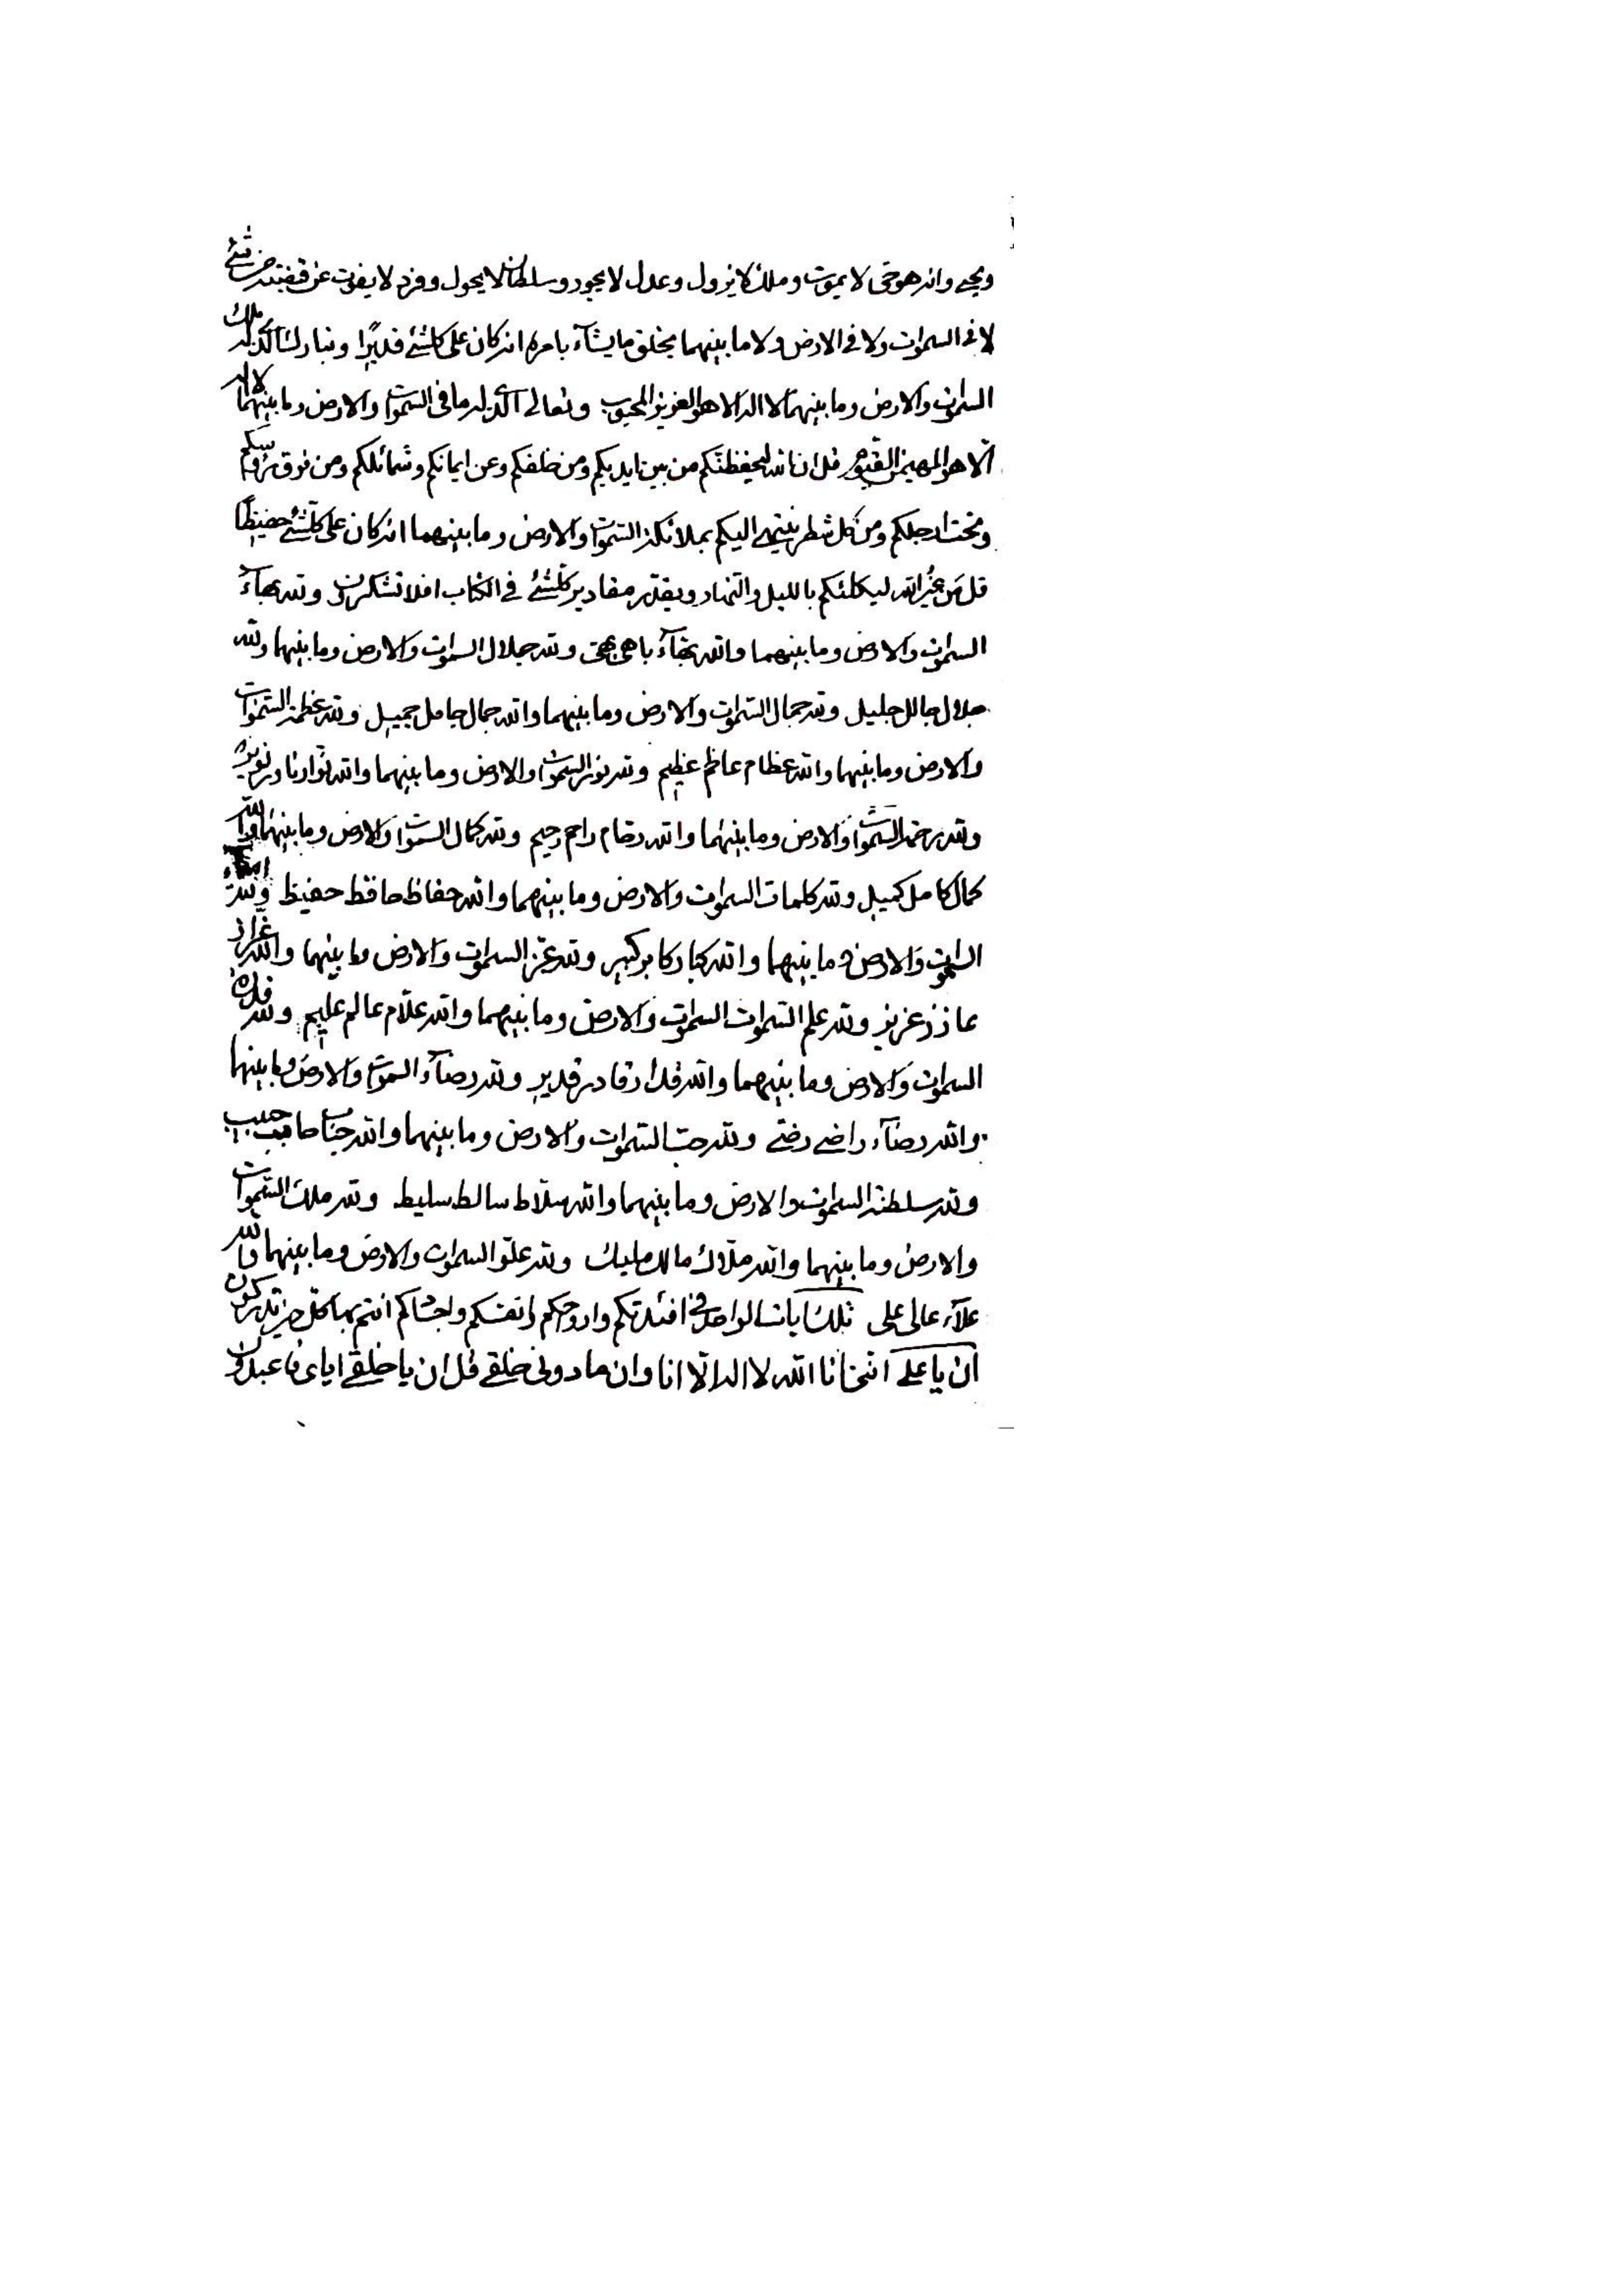 ويحيي وانه هو حي لا يموت وملك لا يزول وعدل لا يجور وسلطان لا يحول وفرد لا يفوت عن قبضته من شئ
لا في السموات ولا في الارض ولا ما بينهما يخلق ما يشآء بامره انه كان على كلشئ قديرًا وتبارك الذي له ملك
السموات والارض وما بينهما لا اله الا هو العزيز المحبوب وتعالى الذي له ما في السموات والارض وما بينهما لا اله
الا هو المهيمن القيوم قل ان الله ليحفظنكم من بين ايديكم ومن خلفكم وعن ايمانكم وشمائلكم ومن فوق رؤسكم
وتحت ارجلكم ومن كل شطر ينتهي اليكم بملائكة السموات والارض وما بينهما انه كان على كلشئ حفيظًا
قل من غير الله ليكلئكم بالليل والنهار ويقدر مقادير كلشئ في الكتاب افلا تشكرون ولله بهآء
السموات والارض وما بينهما والله بهآء باهي بهي ولله جلال السموات والارض وما بينهما والله
جلال جالل جليل ولله جمال السموات والارض وما بينهما والله جمال جامل جميل ولله عظمة السموات
والارض وما بينهما والله عظام عاظم عظيم ولله نور السموات والارض وما بينهما والله نوار ناور نوير
ولله رحمة السموات والارض وما بينهما والله رحام راحم رحيم ولله كمال السموات والارض وما بينهما والله
كمال كامل كميل ولله كلمات السموات والارض وما بينهما والله حفاظ حافظ حفيظ ولله
السموات والارض وما بينهما والله كبار كابر كبير ولله عز السموات والارض وما بينهما والله عزاز
عازز عزيز ولله علم السموات السموات والارض وما بينهما والله علام عالم عليم ولله قدرة
السموات والارض وما بينهما والله قدار قادر قدير ولله رضآء السموات والارض وما بينهما
والله رضآء راضي رضي ولله حب السموات والارض وما بينهما والله حباب حابب حبيب
ولله سلطنة السموات والارض وما بينهما والله سلاط سالط سليط ولله ملك السموات
والارض وما بينهما والله ملاك مالك مليك ولله علو السموات والارض وما بينهما والله
علآء عالي علي تلك ايات الواحد في افئدتكم وارواحكم وانفسكم واجسادكم انتم بها كل حين تذكرون
ان يا علي انني انا الله لا اله الا انا وان ما دوني خلقي قل ان يا خلقي اياي فاعبدون